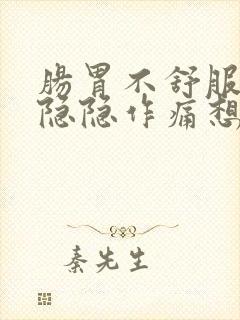 腸胃不舒服
隐隐作痛想
秦先生